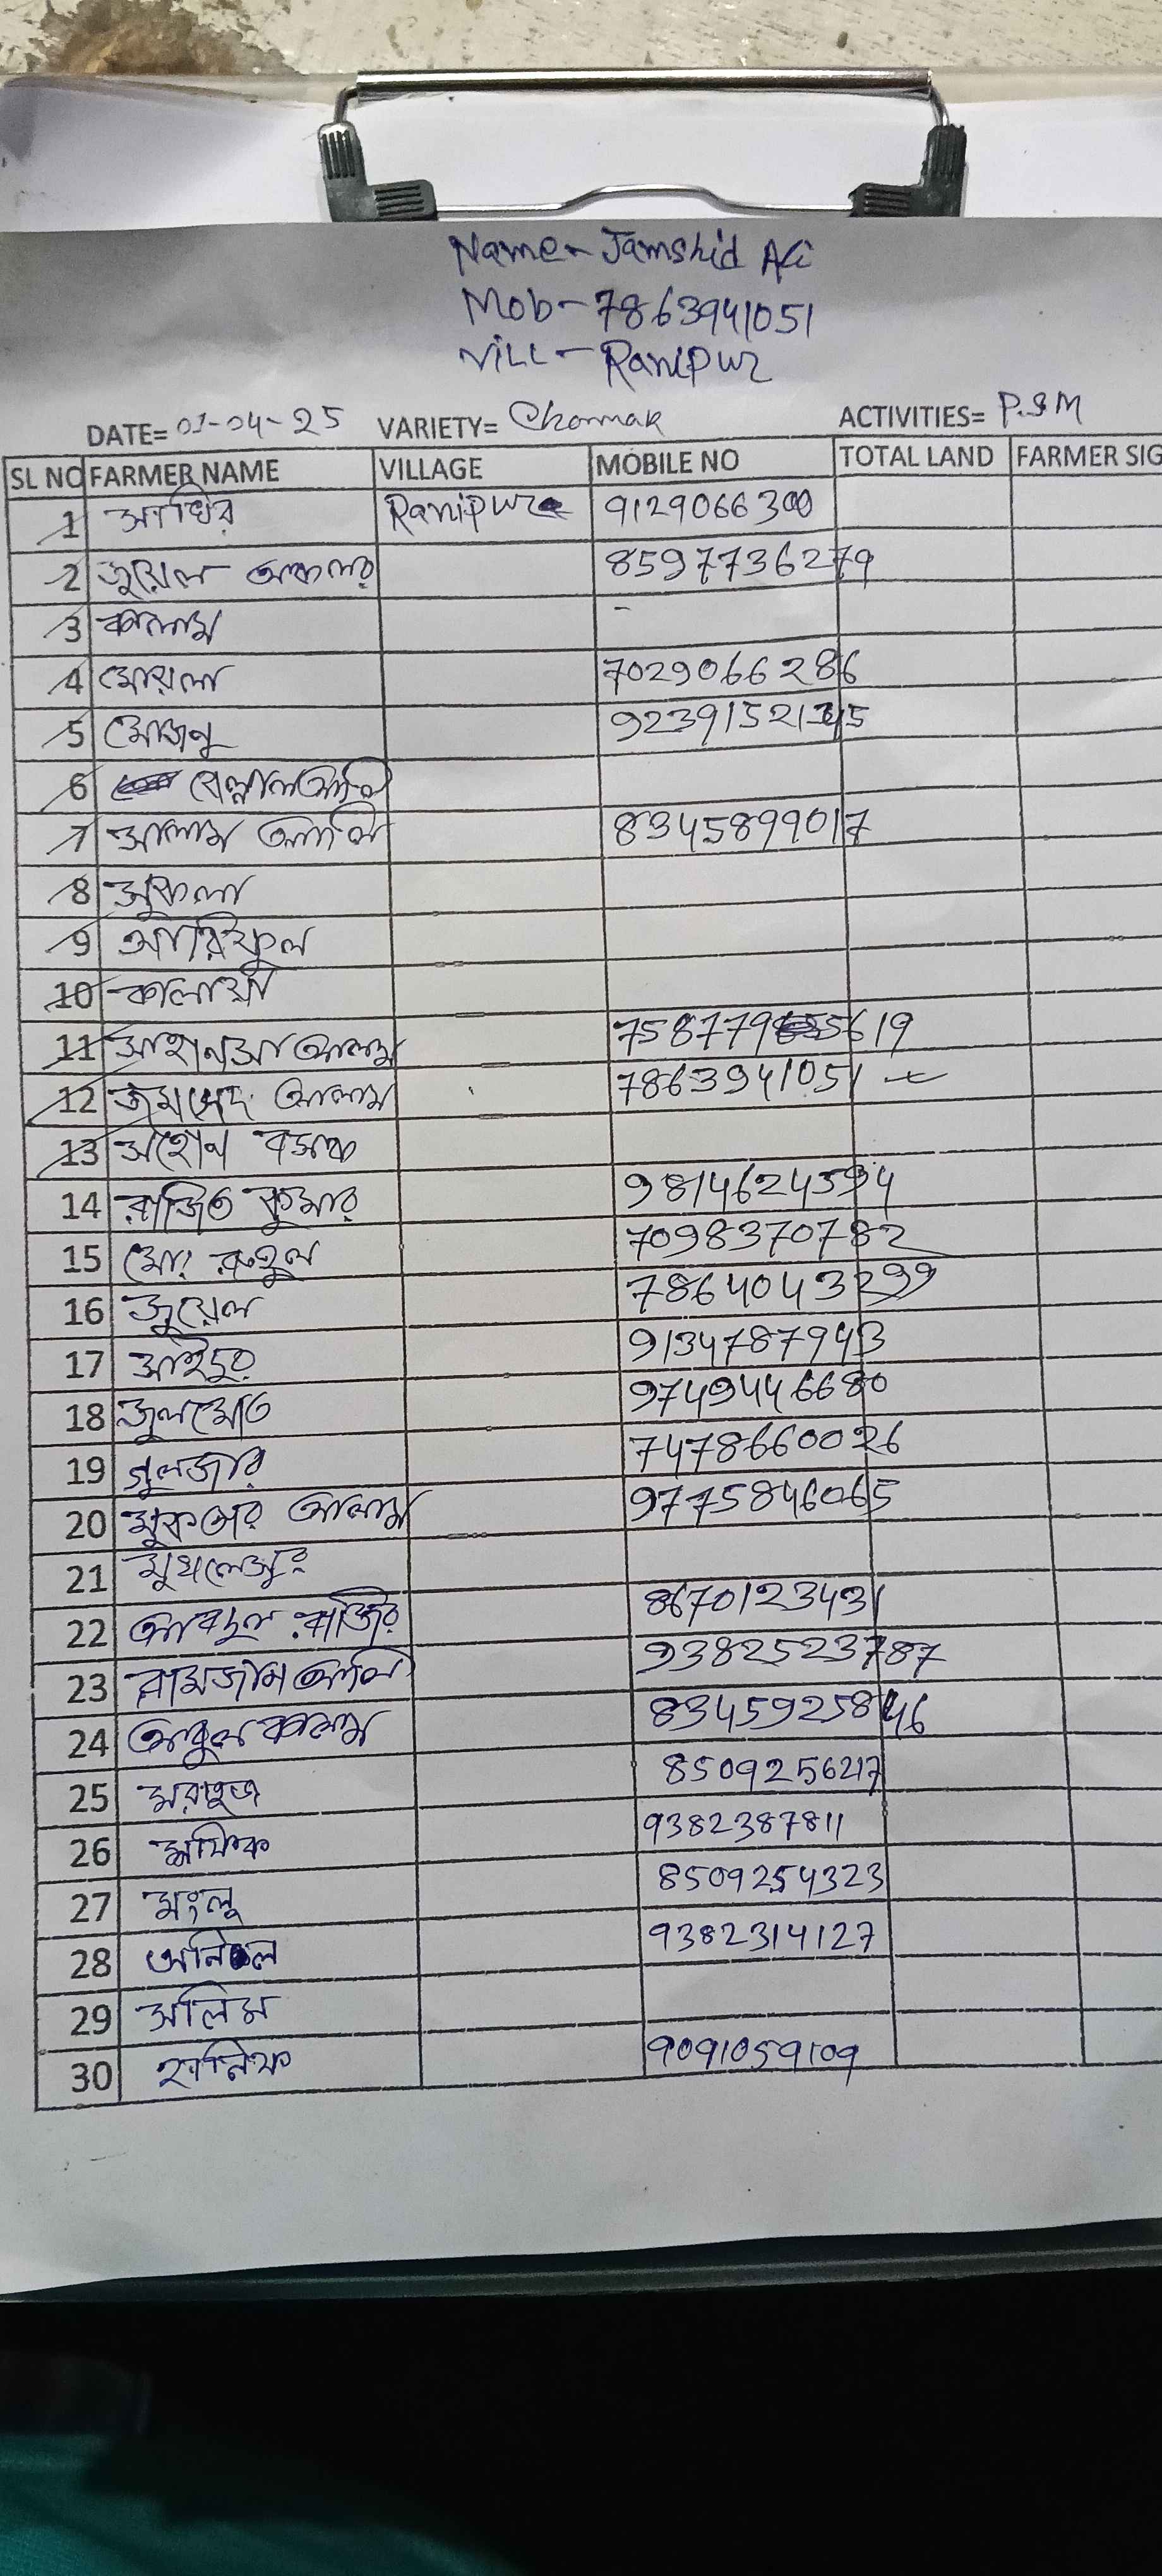 Name- Jamshid Ali
Mob- 7863941051
Vill- Ranipur
DATE= 01-04-25 VARIETY= Chamak ACTIVITIES= P.S.M
SL NO FARMER NAME VILLAGE MOBILE NO TOTAL LAND FARMER SIG
1 Ranipur 9129066300
2 জুয়েল 8597736279
3 কালাম -
4 মোয়লা 7029066286
5 মোজনু
6 বেল্লাল আলি
7 আলাম আলি 8345899017
8 সুকলা
9 আরিফুল
10 কালায়া
11 আলাম 7587795619
12 জমশেদ আলাম 7863941051
13 বসাক
14 রাজিত কুমার 9814624594
15 মোঃ রুহুল 7098370782
16 জুয়েল 7864043299
17 সাইদুর 9134787943
18 জুলমোত 9749446680
19 গুলজার 7478660026
20 আলাম 9775846065
21 মুখলেসুর
22 আবদুল রাজির 8670123431
23 রামজাম আলি 9382523787
24 আবুল কালাম 8345925846
25 8509256217
26 সফিক 9382387811
27 মংলু 8509254323
28 9382314127
29 সলিম
30 হানিফ 9091059109